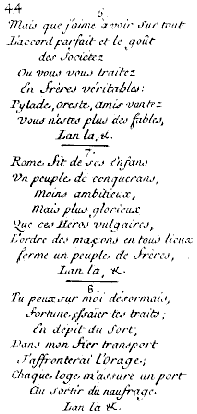 44
6.
Mais que j'aime à voir sur tout
L'accord parfait et le goût
des Sociétez
Ou vous vous traitez
En Frères véritables:
Pylade, oreste, amis vantez
Vous n'estes plus des fables,
Lan la, &.
7.
Rome fit de ses enfans
Un peuple de conquerans,
Moins ambitieux,
Mais plus glorieux
Que ces Heros vulgaires,
L'ordre des maçons en tous lieux
ferme un peuple de Frères,
Lan la, &.
8.
Tu peux sur moi désormais,
Fortune, essaïer tes traits;
En dépit du Sort,
Dans mon fier transport
J'affronterai L'Orage;
Chaque loge m'assure un port
Au sortir du naufrage.
Lan la &.